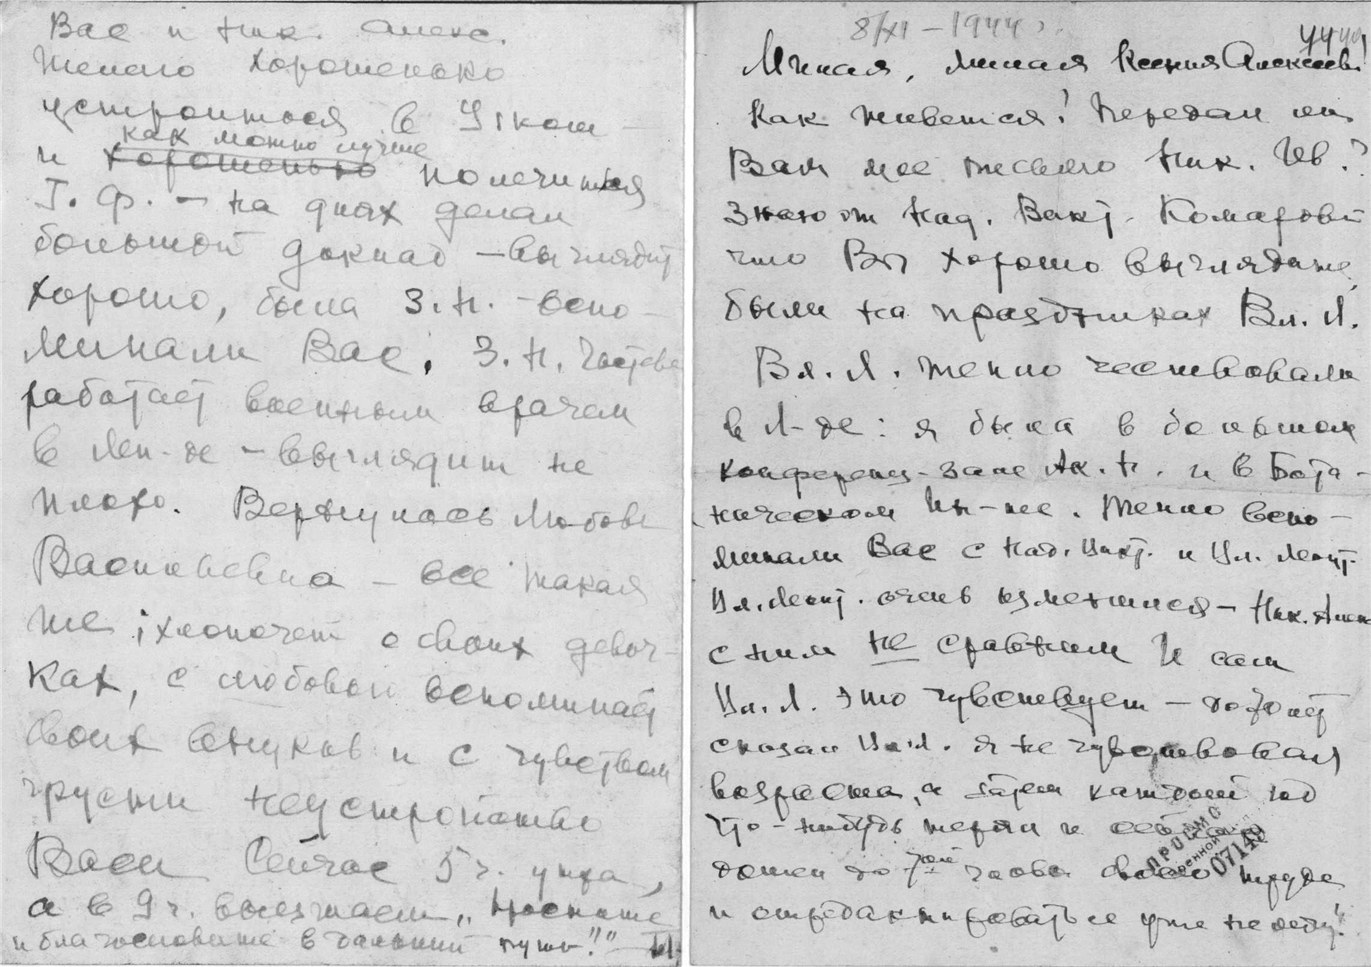 Вас и Ник. Алекс.
Желаю хорошенько
устроиться в Узком
как можно лучше
и хорошенько полечиться
Т. Ф. – на днях делал
большой доклад – выглядит
хорошо, была З. Н. – вспо-
минали Вас. З. Н.
работает военным врачем
в Лен-де – выглядит не
плохо. Вернулась Любовь
Васильевна – все такая
же, хлопочет о своих девоч-
ках, с любовью вспоминает
своих внуков и с чувством
грусти неустройство
Васи Сейчас 5 ч. утра,
а в 9 ч. выезжаем, „простите
и благословите в дальний путь!"
8/XI – 1944 г.
Милая, милая Ксения Алексеевн!
Как живется! Передал ли
Вам мое письмо Ник. Ив.?
Знаю от Над. Викт. Комаровой
что Вы хорошо выглядите,
были на праздниках Вл. Л.
Вл. Л. тепло чествовали
в Л-де: я была в большом
конференц-зале Ак. Н. и в Бота-
ническом Ин-те. Тепло вспо-
минали Вас с Над. Викт. и Вл. Леонт.
Вл. Леонт. очень изменился – Ник. Алек
с ним не сравним И сам
Вл. Л. это чувствует – до 70 лет
сказал Вл. Л. я не чувствовал
возраста, а затем каждый год
что-нибудь терял и
дошел до 7ой главы своего труда
и отредактировать ее уже не могу!
ПРОСМО
военной
07149